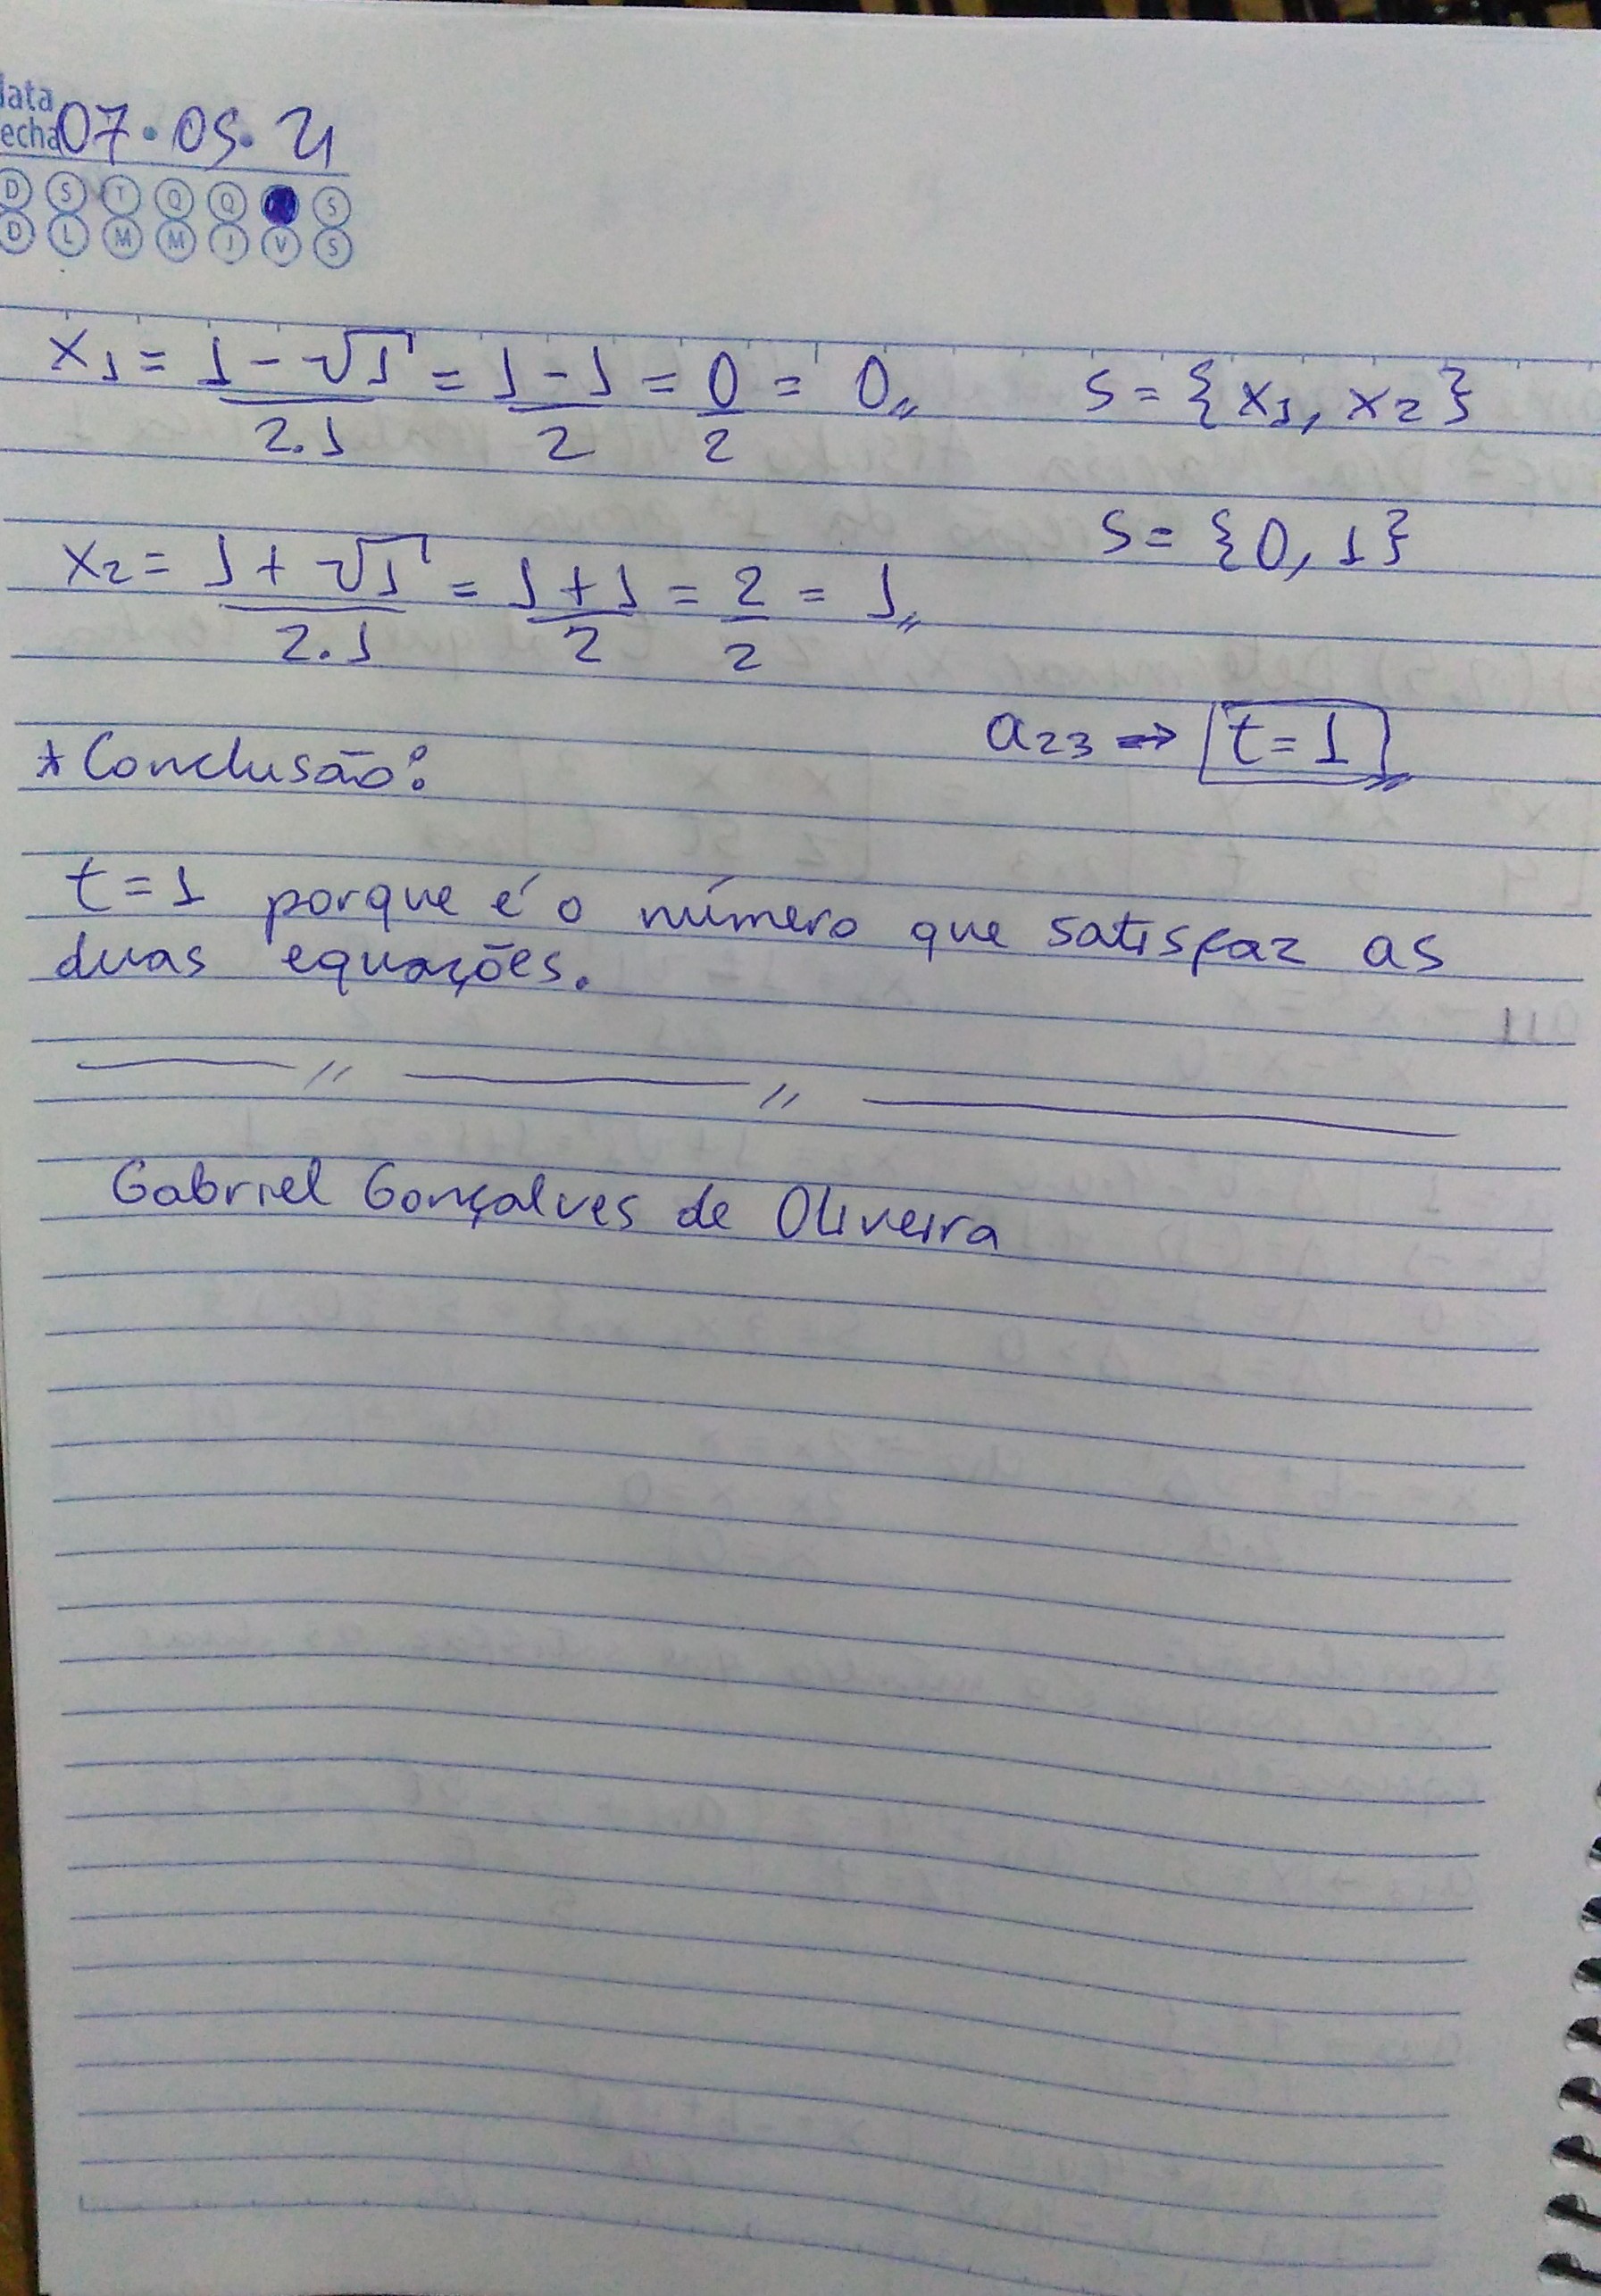 data
fecha 07.05.21
D S T Q Q S
D L M M J V S
x₁ = (1 - √1)/(2.1) = (1 - 1)/2 = 0/2 = 0,, S = {x₁, x₂}
S = {0, 1}
x₂ = (1 + √1)/(2.1) = (1 + 1)/2 = 2/2 = 1,,
a₂₃ → t = 1
* Conclusão:
t = 1 porque é o número que satisfaz as
duas equações.
Gabriel Gonçalves de Oliveira